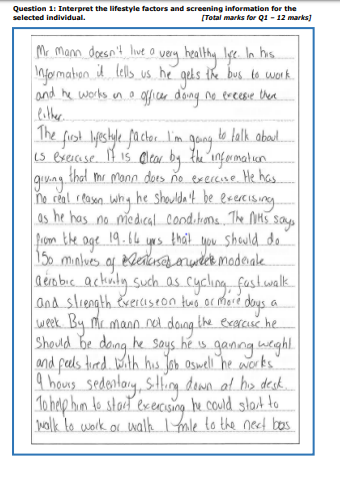 Question 1: Interpret the lifestyle factors and screening information for the
selected individual. [Total marks for Q1 – 12 marks]
Mr Mann doesn't live a very healthy life. In his
information it tells us he gets the bus to work
and he works in a office doing no excesie then
either.
The first lifestyle factor I'm going to talk about
is exercise. It is clear by the information
giving that mr mann does no exercise. He has
no real reason why he shouldn't be exercising
as he has no medical conditions. The NHS says
from the age 19-64 yrs that you should do
150 mintues of moderate
aerobic activity such as cycling, fast walk
and strength exercise on two or more days a
week. By Mr mann not doing the exercise he
should be doing he says he is gaining weight
and feels tired. With his job aswell he works
9 hours sedentary, sitting down at his desk.
To help him to start exercising he could start to
walk to work or walk 1 mile to the next bus